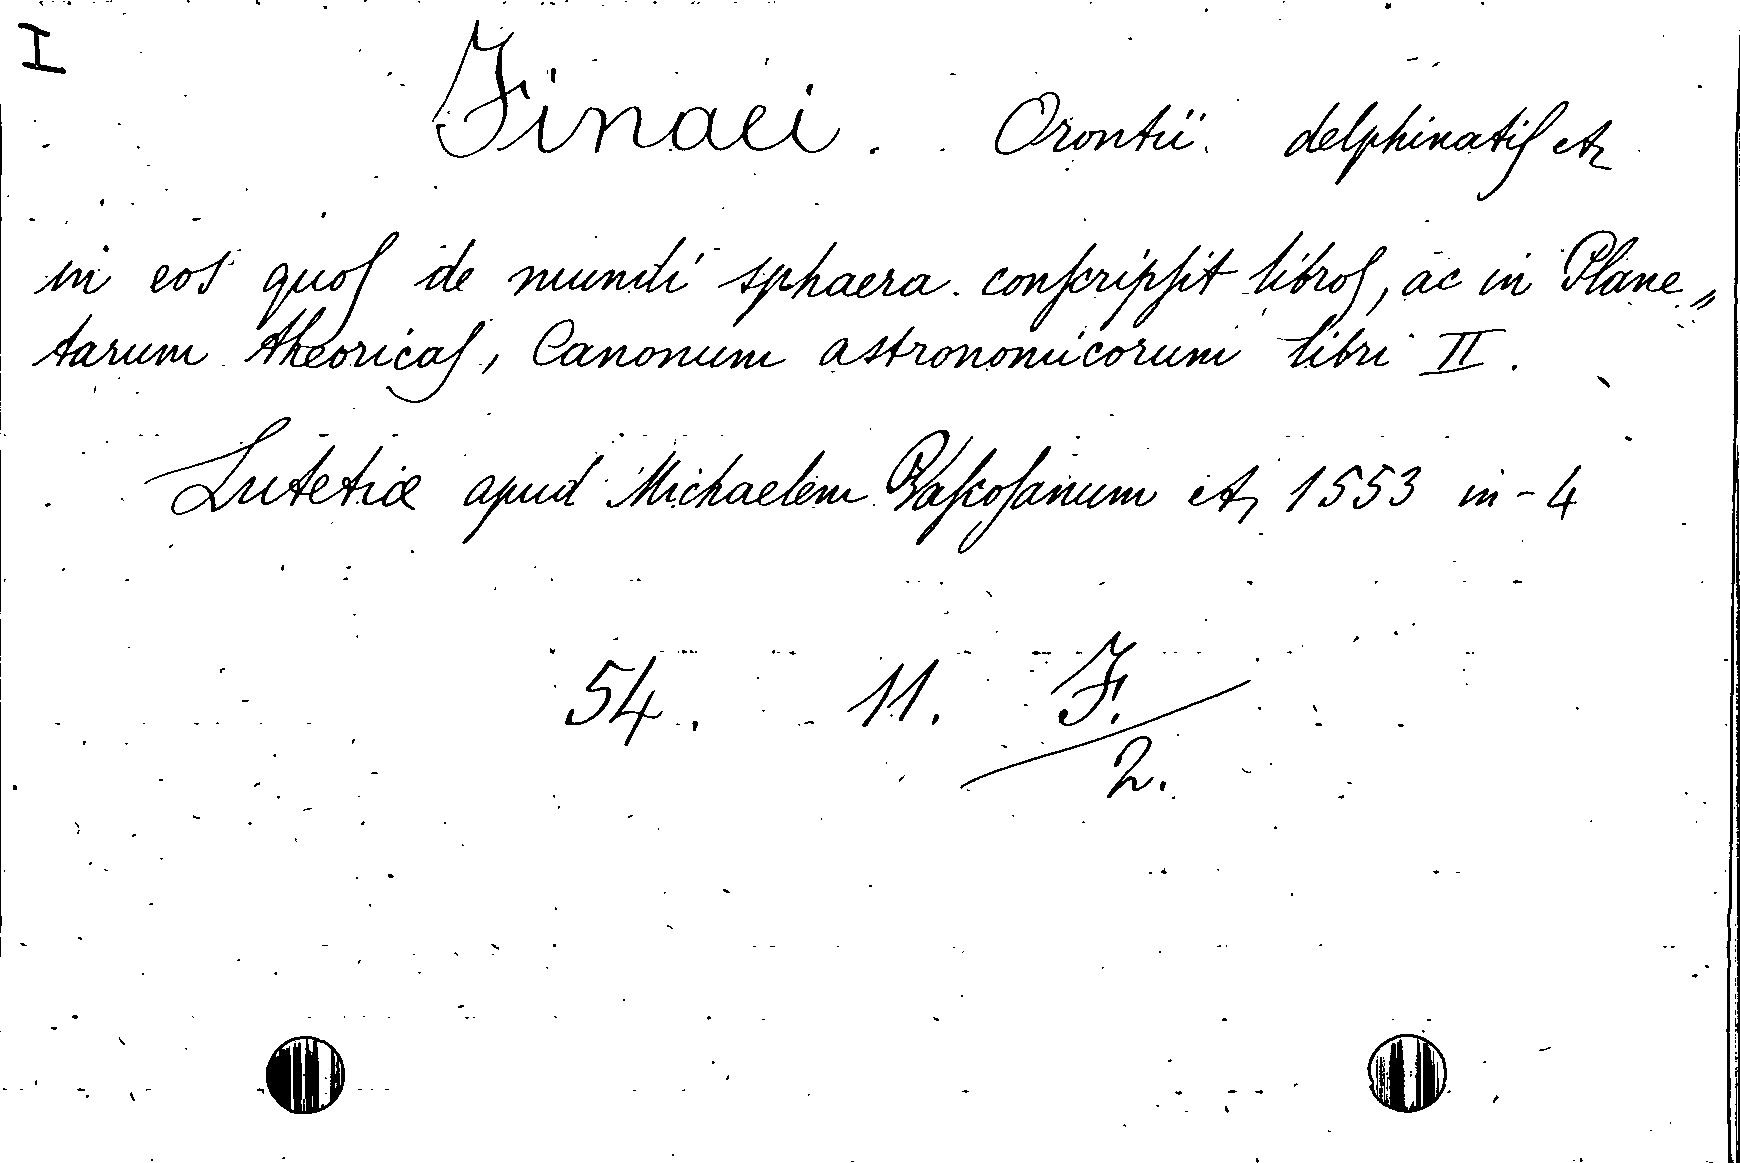 I
Finaei. Orontii. delphinatis etc
in eos quos de mundi sphaera conscripsit libros, ac in Plane„
tarum theoricas, Canonum astronomicorum libri II.
Lutetiæ apud Michaelem Vascosanum etc 1553 in-4
54. 11. F.
2.